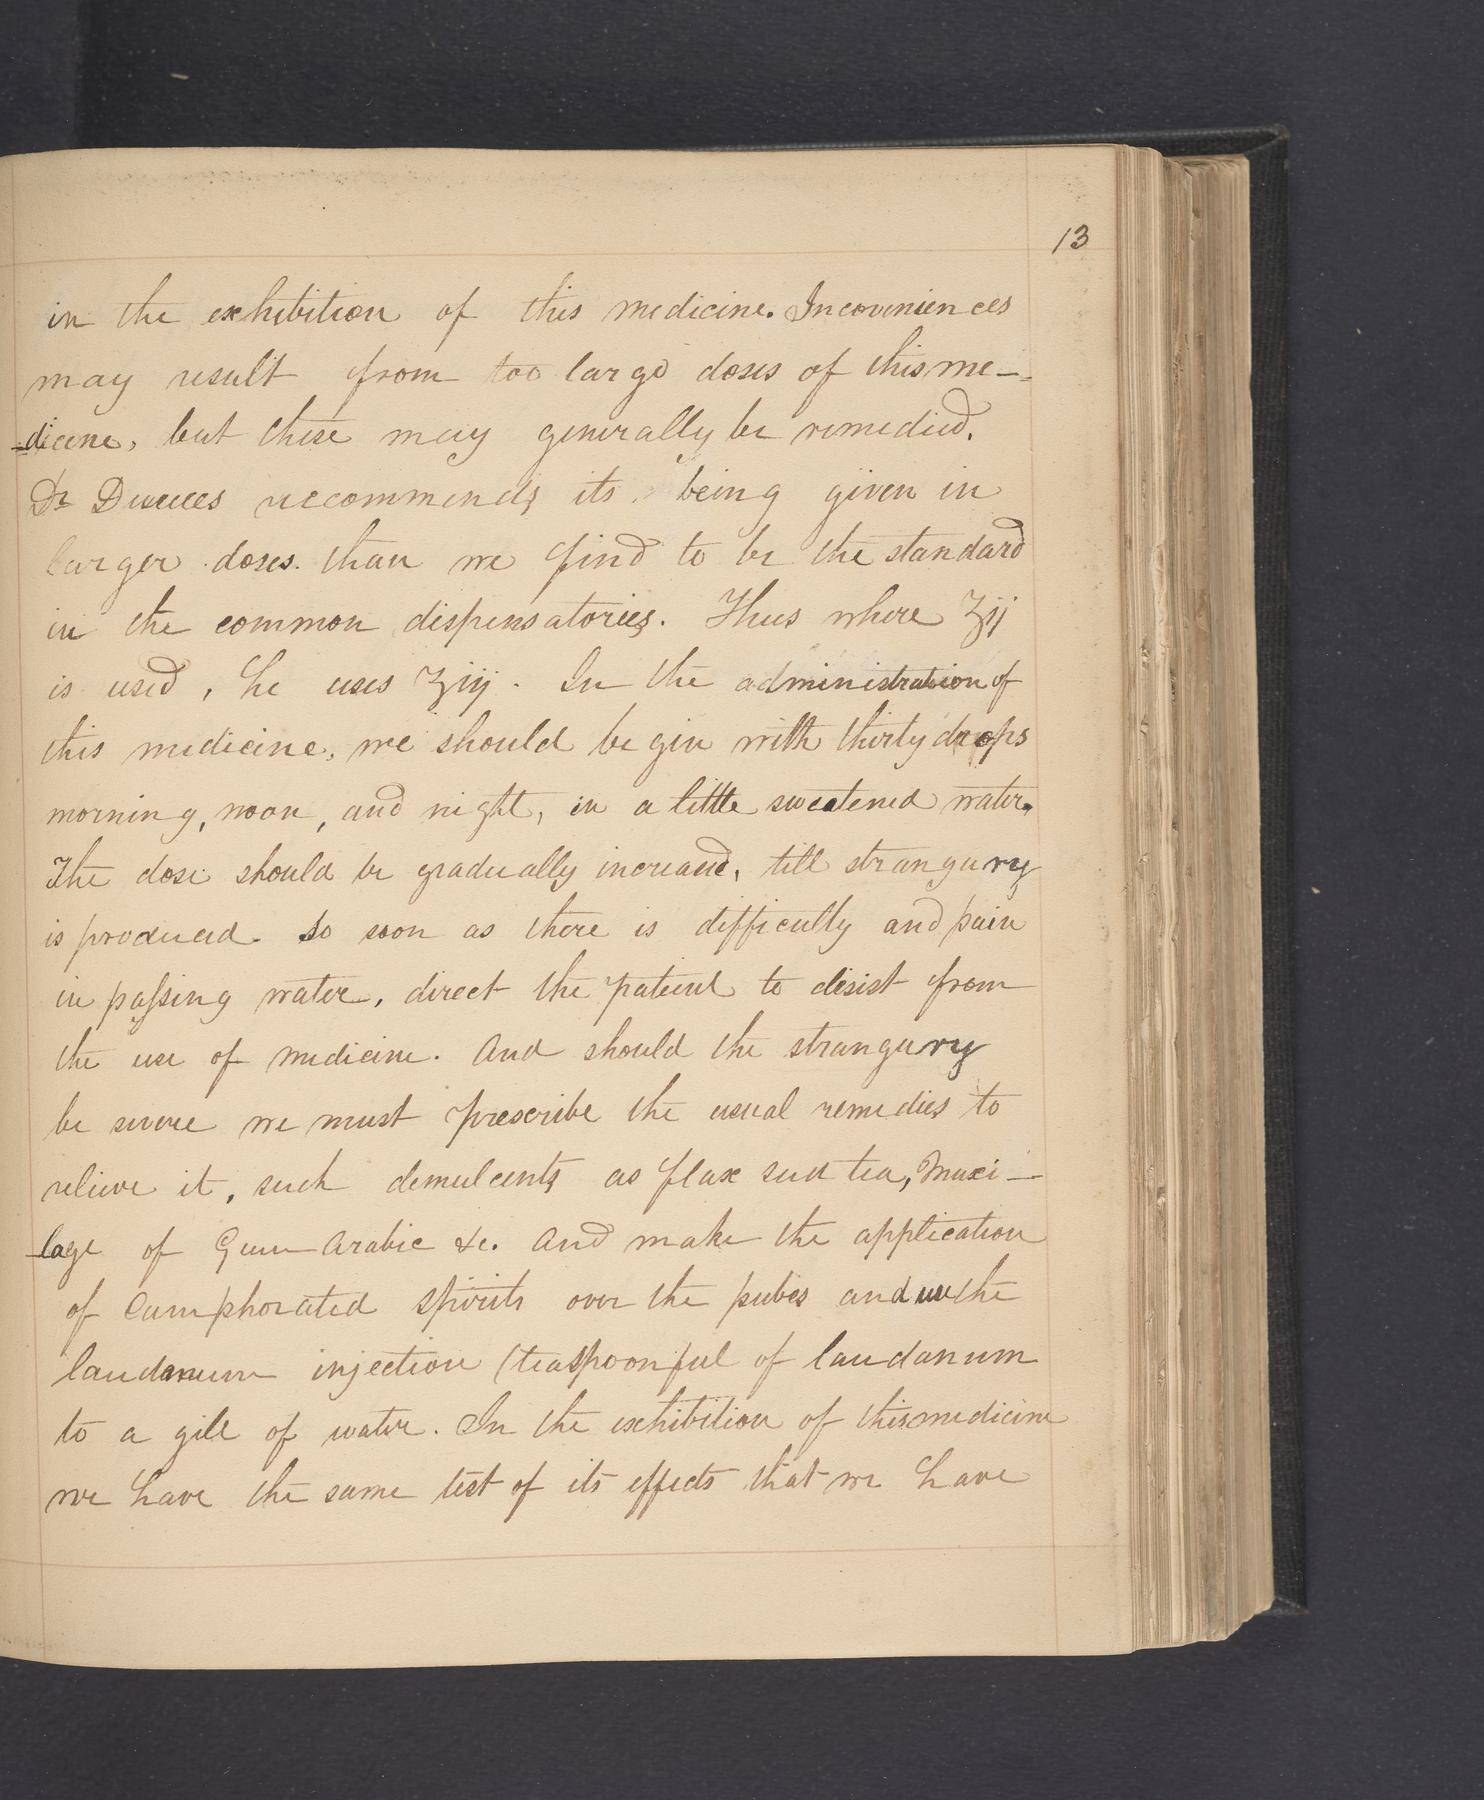 13
in the exhibition of this medicine. Inconveniences
may result from too large doses of this me-
-dicine, but these may generally be remedied.
Dr Dewees recommends its being given in
larger doses. than we find to be the standard
in the common dispensatories. Thus where ʒij
is used, he uses ʒiij. In the administration of
this medicine, we should begin with thirty drops
morning, noon, and night, in a little sweetened water.
The dose should be gradually increased, till strangury
is produced. So soon as there is difficulty and pain
in passing water, direct the patient to desist from
the use of medicine. And should the strangury
be severe we must prescribe the usual remedies to
relieve it, such demulcents as flax seed tea, Muci-
-lage of Gum Arabic &c. And make the application
of Camphorated spirits over the pubes and use the
laudanum injection (teaspoonful of laudanum
to a gill of water. In the exhibition of this medicine
we have the same test of its effects that we have